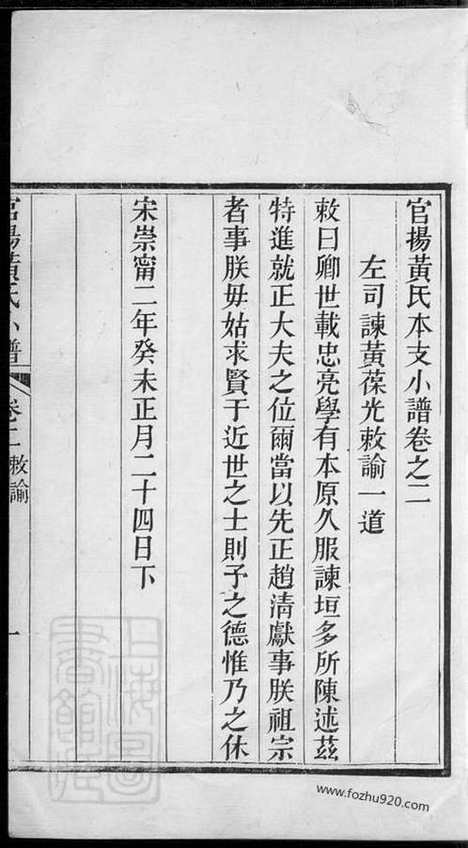 官揚黃氏本支小譜卷之二
左司諫黃葆光敕諭一道
敕曰卿世載忠亮學有本原久服諫垣多所陳述茲
特進就正大夫之位爾當以先正趙清獻事朕祖宗
者事朕毋姑求賢于近世之士則予之德惟乃之休
宋崇甯二年癸未正月二十四日下
官揚黃氏小譜
卷二 敕諭
一
上海圖書館藏
www.fozhu920.com